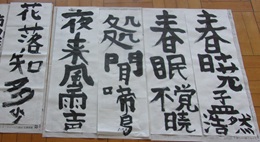 春暁 孟浩然
春眠不覚暁
処聞啼鳥
夜来風雨声
花落知多少